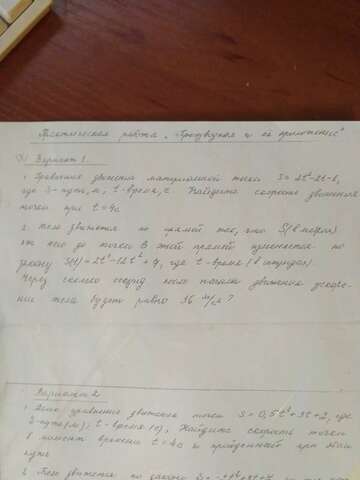 Практическая работа „Производная и её приложения"
Вариант 1
1. Уравнение движения материальной точки S = 2t²-2t-1,
где S-путь, м, t-время, с. Найдите скорость движения
точки при t = 4с
2. Тело движется по прямой так, что S (в метрах)
от него до точки B этой прямой изменяется по
закону S(t) = 2t³-12t²+7, где t-время (в секундах).
Через сколько секунд после начала движения ускоре-
ние тела будет равно 36 м/с²?
Вариант 2
1. Дано уравнение движения точки S = 0,5t²+3t+2, где
S-путь (м), t-время (с). Найдите скорость точки
в момент времени t = 4с и пройденный при этом
путь
2. Тело движется по закону